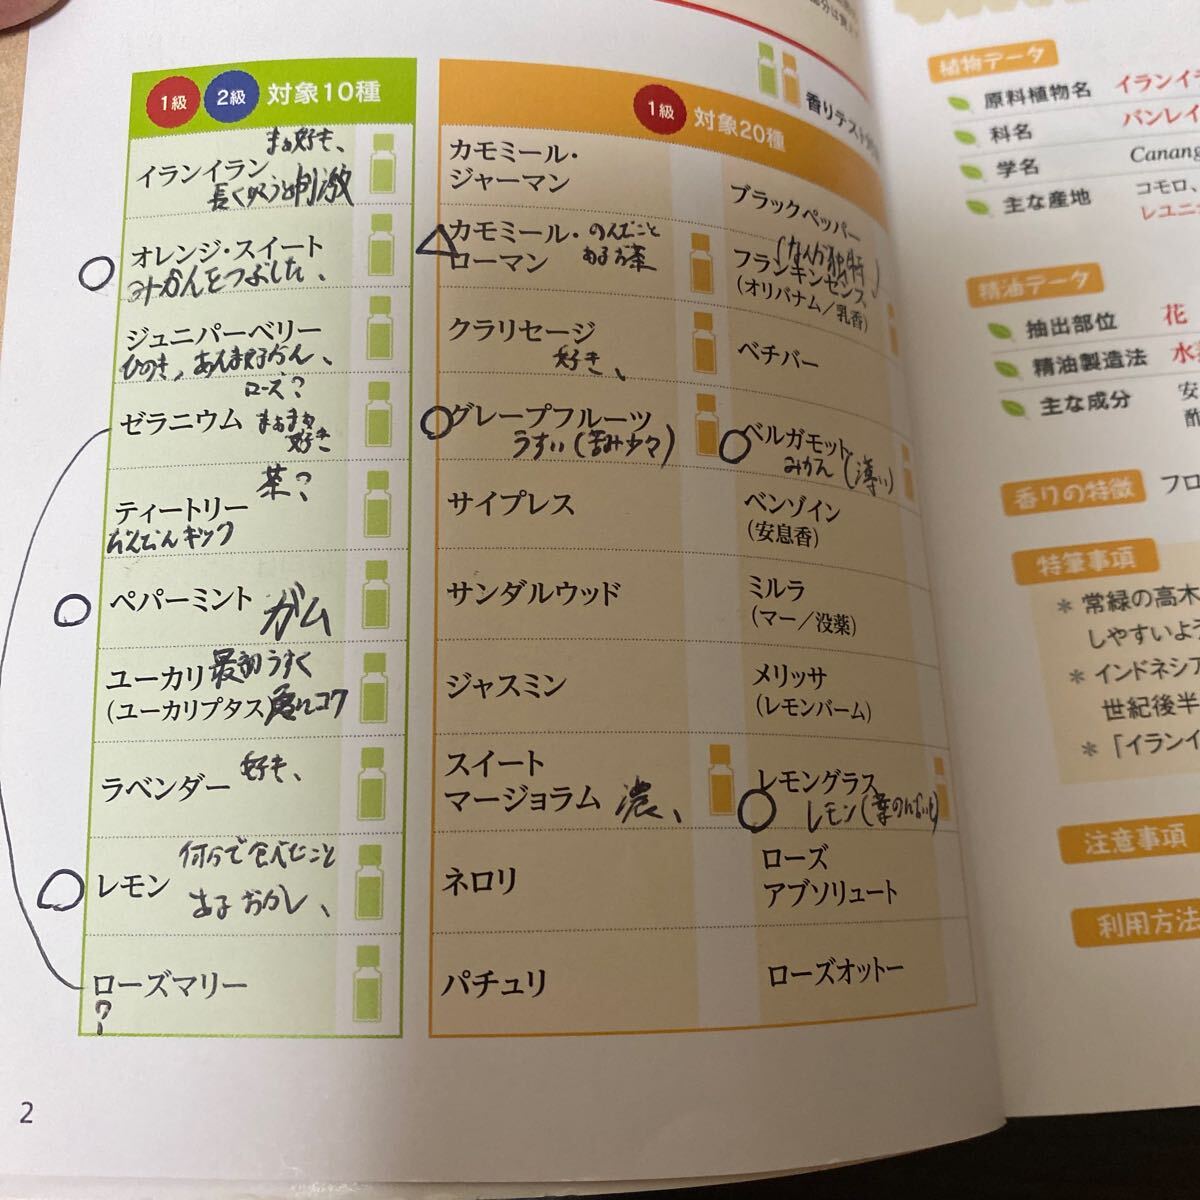 1級 2級 対象10種
イランイラン
まぁ好き、
長く吸うと刺激
オレンジ・スイート
みかんをつぶした、
ジュニパーベリー
ひのき、あんま好かん、
ゼラニウム
ローズ?
まぁまぁ
好き
ティートリー
茶?
ペパーミント
ガム
ユーカリ
(ユーカリプタス)
最初うすく
ラベンダー
好き、
レモン
何かで食べたこと
ある おかし、
ローズマリー
?
1級 対象20種
カモミール・
ジャーマン
カモミール・
ローマン
のんだこと
あるお茶
クラリセージ
好き、
グレープフルーツ
うすい(苦み少々)
サイプレス
サンダルウッド
ジャスミン
スイート
マージョラム
濃、
ネロリ
パチュリ
香りテスト
ブラックペッパー
(なんか独特)
フランキンセンス
(オリバナム/乳香)
ベチバー
ベルガモット
みかん(薄い)
ベンゾイン
(安息香)
ミルラ
(マー/没薬)
メリッサ
(レモンバーム)
レモングラス
ローズ
アブソリュート
ローズオットー
2
植物データ
原料植物名 イランイ
科名 バンレイ
学名 Canang
主な産地 コモロ、
レユニ
精油データ
抽出部位 花
精油製造法 水
主な成分 安
酢
香りの特徴 フロ
特筆事項
* 常緑の高木
しやすいよう
* インドネシア
世紀後半
* 「イランイ
注意事項
利用方法